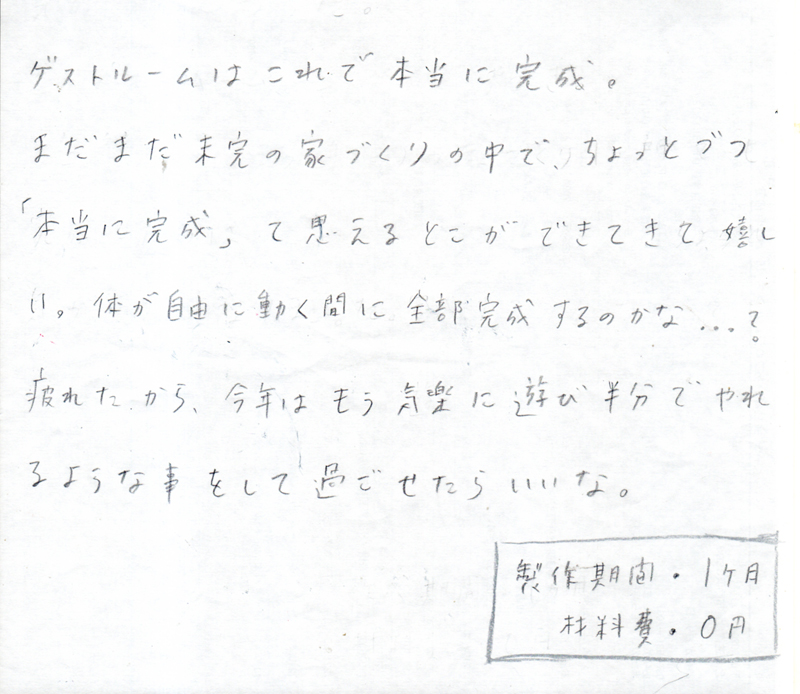 ゲストルームはこれで本当に完成。
まだまだ未完の家づくりの中で、ちょっとづつ
「本当に完成」て思えるとこができてきて嬉し
い。体が自由に動く間に全部完成するのかな…?
疲れたから、今年はもう気楽に遊び半分でやれ
るような事をして過ごせたらいいな。
製作期間・1ヶ月
材料費・0円